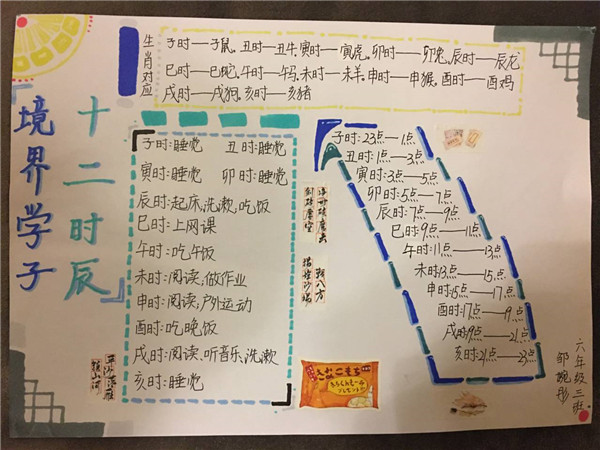 十二时辰
境界学子
生肖对应
子时—子鼠,丑时—丑牛,寅时—寅虎,卯时—卯兔,辰时—辰龙
巳时—巳蛇,午时—午马,未时—未羊,申时—申猴,酉时—酉鸡
戌时—戌狗,亥时—亥猪
子时:睡觉 丑时:睡觉
寅时:睡觉 卯时:睡觉
辰时:起床,洗漱,吃饭
巳时:上网课
午时:吃午饭
未时:阅读,做作业
申时:阅读,户外运动
酉时:吃晚饭
戌时:阅读,听音乐,洗漱
亥时:睡觉
子时:23点—1点
丑时:1点—3点
寅时:3点—5点
卯时:5点—7点
辰时:7点—9点
巳时:9点—11点
午时:11点—13点
未时:13点—15点
申时:15点—17点
酉时:17点—19点
戌时:19点—21点
亥时:21点—23点
六年级三班